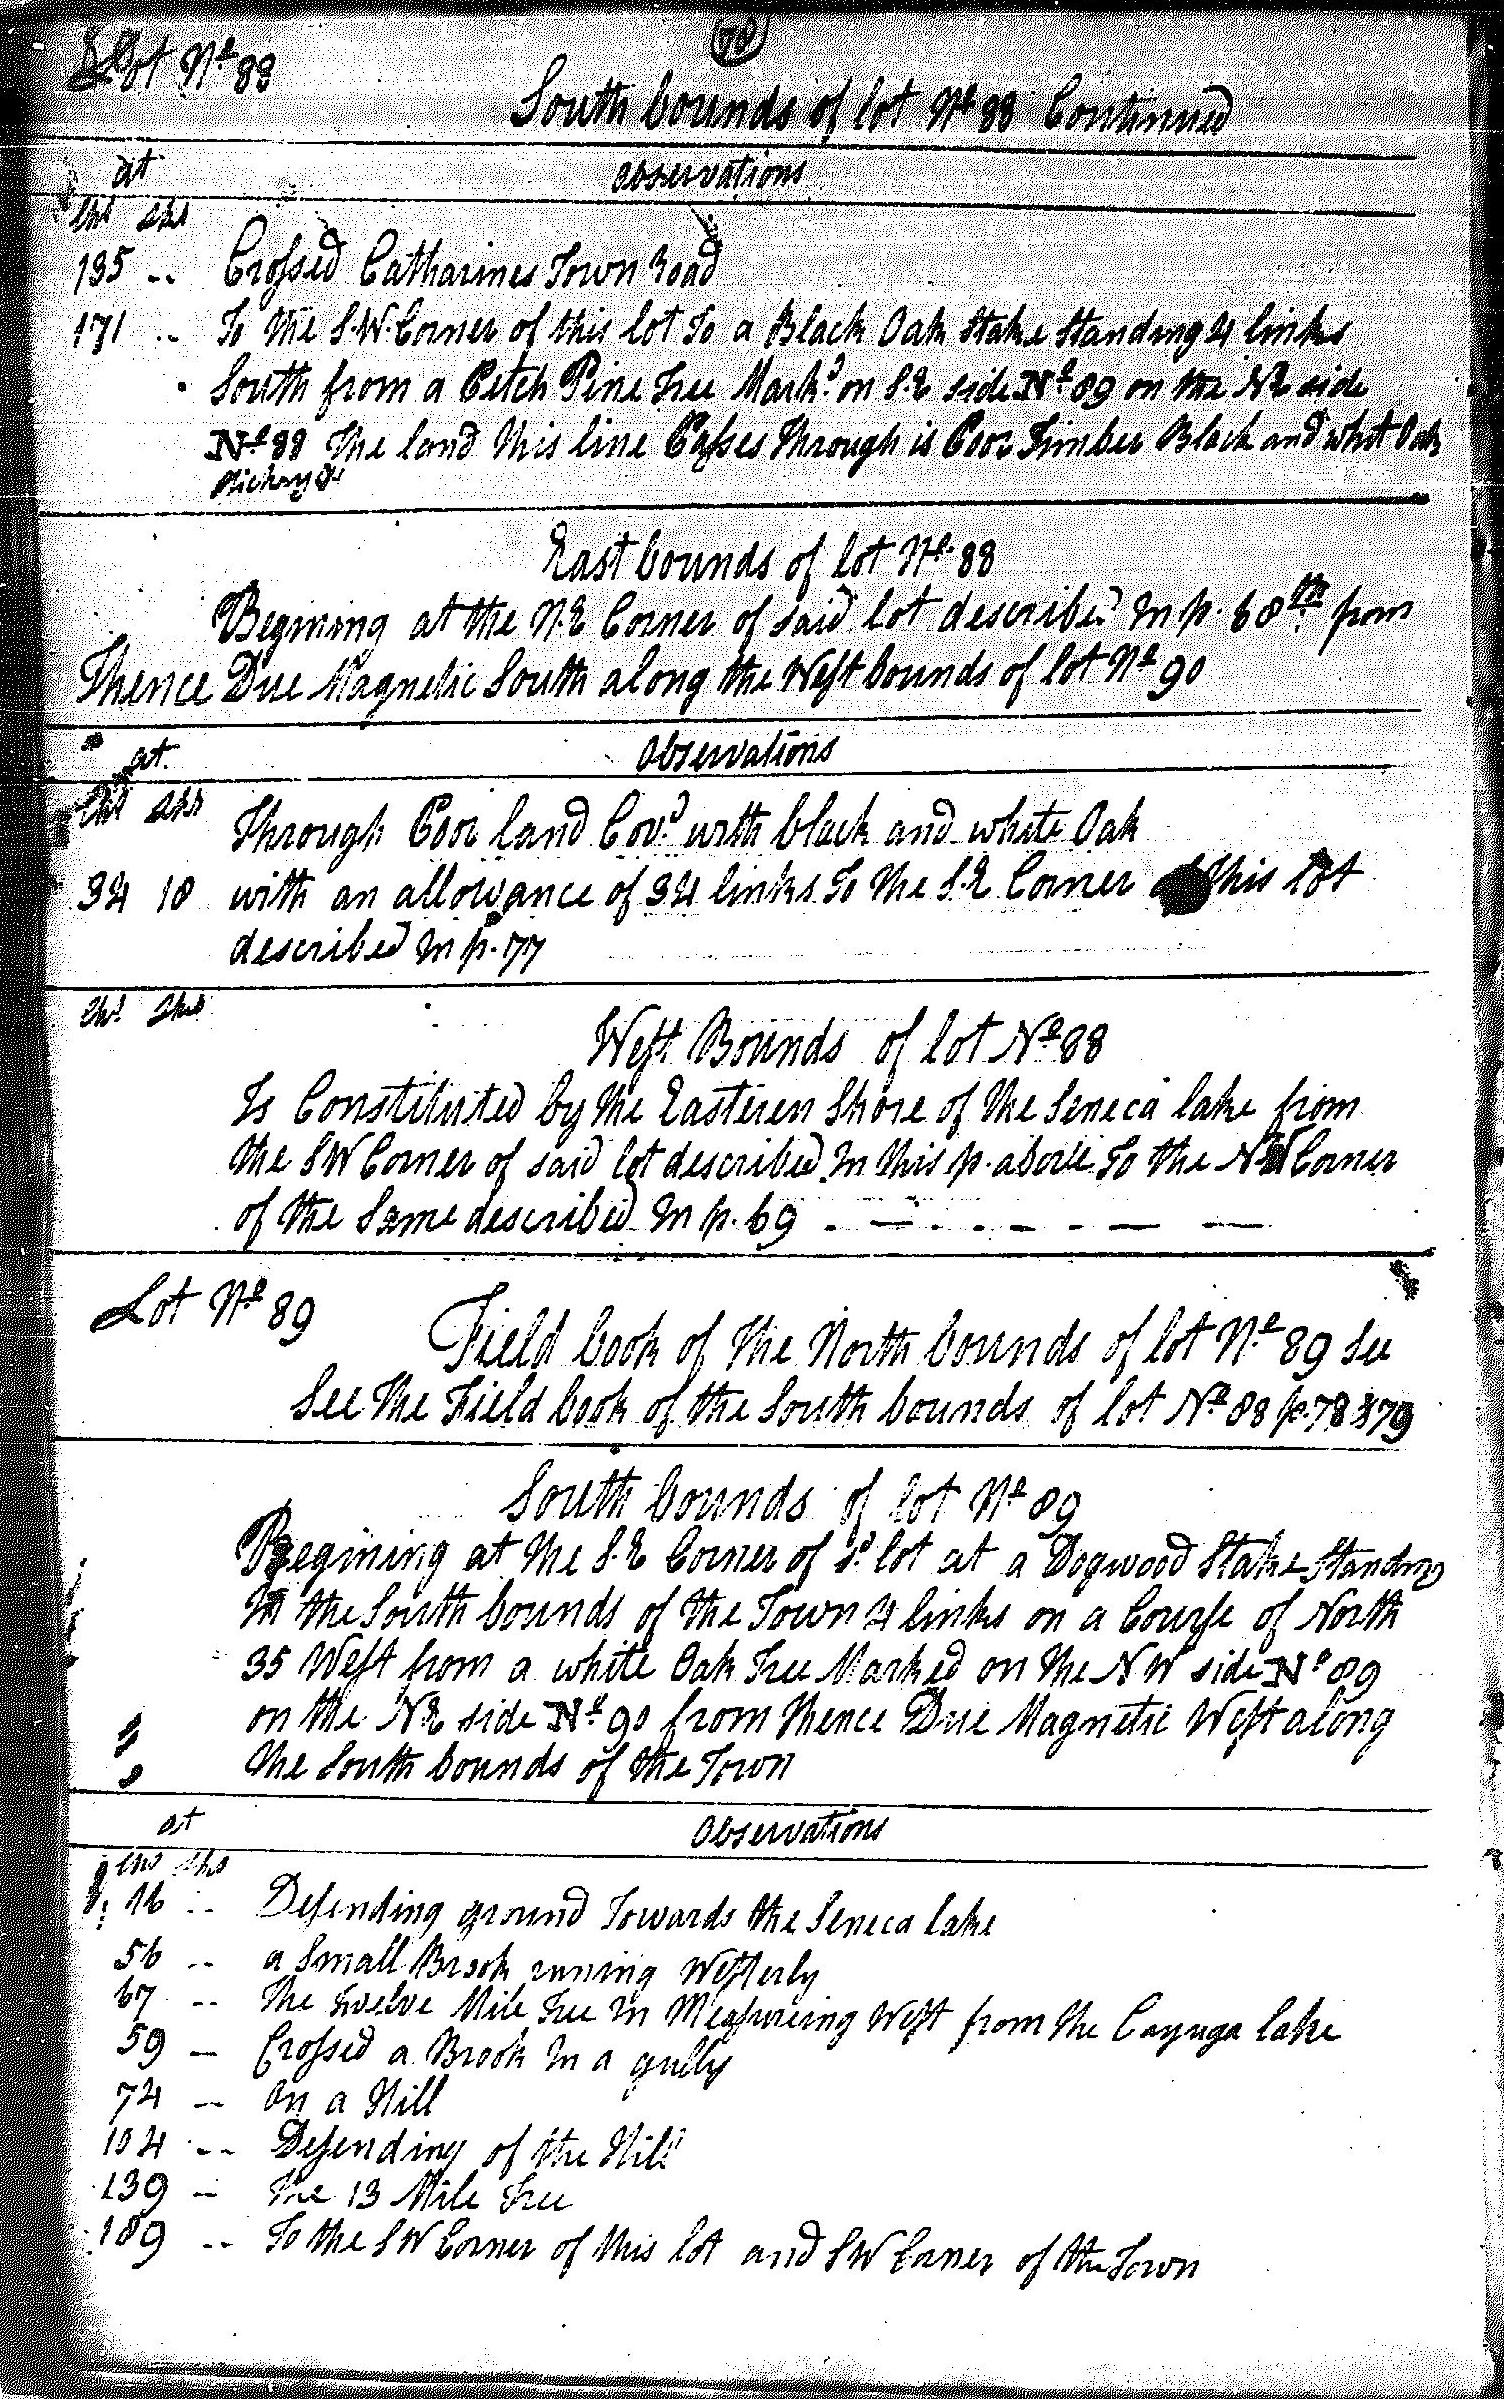 Lot No 88
South bounds of lot No 88 Continued
at observations
Chs Lks
135 .. Crossed Catharines Town road
171 .. To the S.W. Corner of this lot To a Black Oak Stake standing 4 links
South from a Pitch Pine Tree Markd on S.E side No 89 on the NE side
No 88 The land this line Passes Through is Poor Timber Black and whit Oak
Hickory &c
East bounds of lot No 88
Begining at the N.E Corner of said lot described in p. 68th from
Thence Due Magnetic South along the West bounds of lot No 90
at observations
Chs Lks Through Poor land Covd with black and white Oak
34 10 with an allowance of 34 links To the S.E Corner of this lot
described in p. 77
Chs Lks
West Bounds of lot No 88
Is Constituted by the Easteren Shore of the Seneca lake from
the SW Corner of said lot described in this p. above To the NW Corner
of the Same described in p. 69
Lot No 89
Field book of the North bounds of lot No 89 See
See The Field book of the South bounds of lot No 88 p. 78 & 79
South bounds of lot No 89
Begining at the S.E Corner of sd lot at a Dogwood Stake Standing
in the South bounds of the Town 4 links on a Course of North
35 West from a white Oak Tree Marked on the NW side No 89
on the NE side No 90 from thence Due Magnetic West along
the South bounds of the Town
at observations
Chs Lks
16 .. Desending ground Towards the Seneca lake
56 .. a Small Brook runing Westerly
67 .. The Twelve Mile Tree in Measureing West from the Cayuga lake
59 .. Crossed a Brook in a gully
74 .. On a Hill
104 .. Desending of the Hill
139 .. The 13 Mile Tree
189 .. To the SW Corner of this lot and SW Corner of the Town